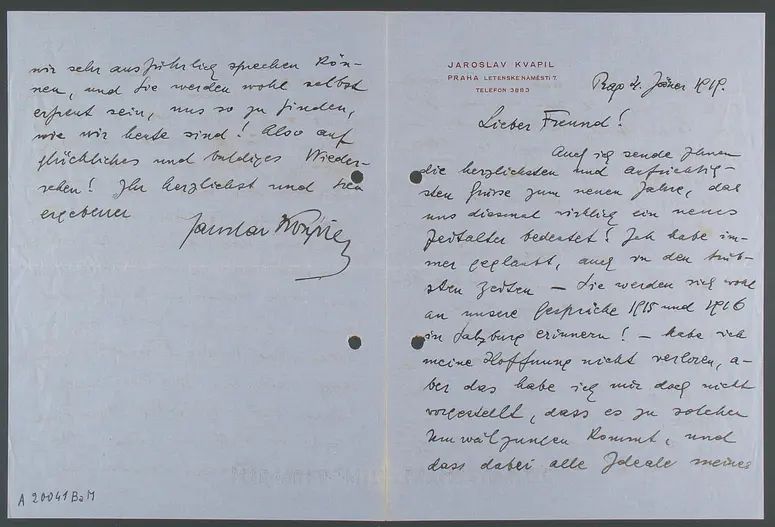 JAROSLAV KVAPIL
PRAHA LETENSKÉ NÁMĚSTÍ 7.
TELEFON 3883
Prag 4. Jäner 1919.
Lieber Freund!
Auch ich sende Ihnen
die herzlichsten und aufrichtig-
sten Grüsse zum neuen Jahre, das
uns diesmal richtig ein neues
Zeitalter bedeutet! Ich habe im-
mer geglaubt, auch in den trüb-
sten Zeiten – Sie werden sich wohl
an unsere Gespräche 1915 und 1916
in Salzburg erinnern! – habe ich
meine Hoffnung nicht verloren, a-
ber das habe ich mir doch nicht
vorgestellt, dass es zu solchen
Umwälzungen kommt, und
dass dabei alle Ideale meines
wir sehr ausführlich sprechen kön-
nen, und Sie werden wohl selbst
erfreut sein, uns so zu finden,
wie wir heute sind! Also auf
glückliches und baldiges Wieder-
sehen! Ihr herzlichst und treu
ergebener
Jaroslav Kvapil
A 20041 BaM